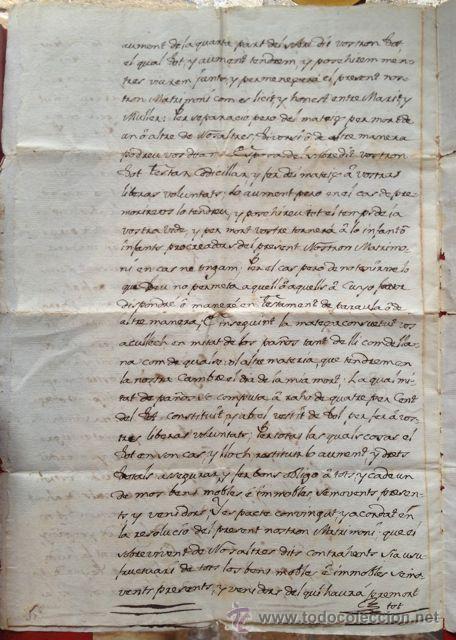 aument de la quarta part del sobredit vostron Dot,
el qual Dot, y aument tendrem, y posehirem men-
tres viurem junts, y permeneixerà el present nos-
tron Matrimoni com es licit y honest entre Marit y
Muller: Per separacio pero del mateix per mort de
un ó altre de Nosaltres, ó de altre manera
podreu vos dita Esposa del sobredit vostron
Dot Testar, Codicillar, y fer del mateix à vostras
liberas voluntats; Lo aument pero en el cas de pre-
morirvos lo tendreu, y posehireu tot el temps de la
vostra vide, y per mort vostre tornerà à lo infant ó
infants procreadors del present Nostron Matrimo-
ni en cas ne tingam; Per el cas pero de no tenirne lo
que Deu no permeta à aquell ó aquells à
dispondré ó manaré en Testament de paraula ó de
altre manera, E inseguint la mateixa consuetut vos
acullech en mitat de los paños tant de lli com de lla-
na com de qualsevol altre materia, que tendrem en
la nostra Cambra el dia de la mia mort: La qual mi-
tat de paños se computa à rahó de quatre per Cent
del Dot constituit y ab el vestit de Dol per fer à vos-
tres liberas voluntats; Per totas las quals cosas el
Dot en son cas y lloch restituir lo aument y drets
Dotals assegurar, y fer bons obligo à tots y cade un
de mos bens mobles è immobles semovents presen-
ts y venidors Y es pacte convingut y acordat en
la resolucio del present nostron Matrimoni que el
sobrevivent de Nosaltres dits contrahents sia usu-
fructuari de tots los bens mobles è immobles semo-
vents presents, y venidors del qui haurà premort
tot
www.todocoleccion.net